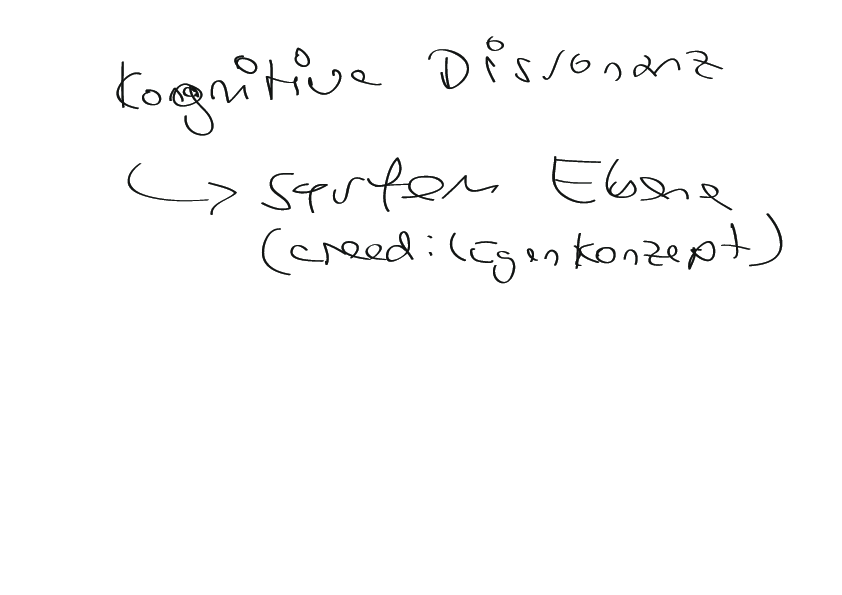 Kognitive Dissonanz
↳ System Ebene
(creed: (Egenkonzept)